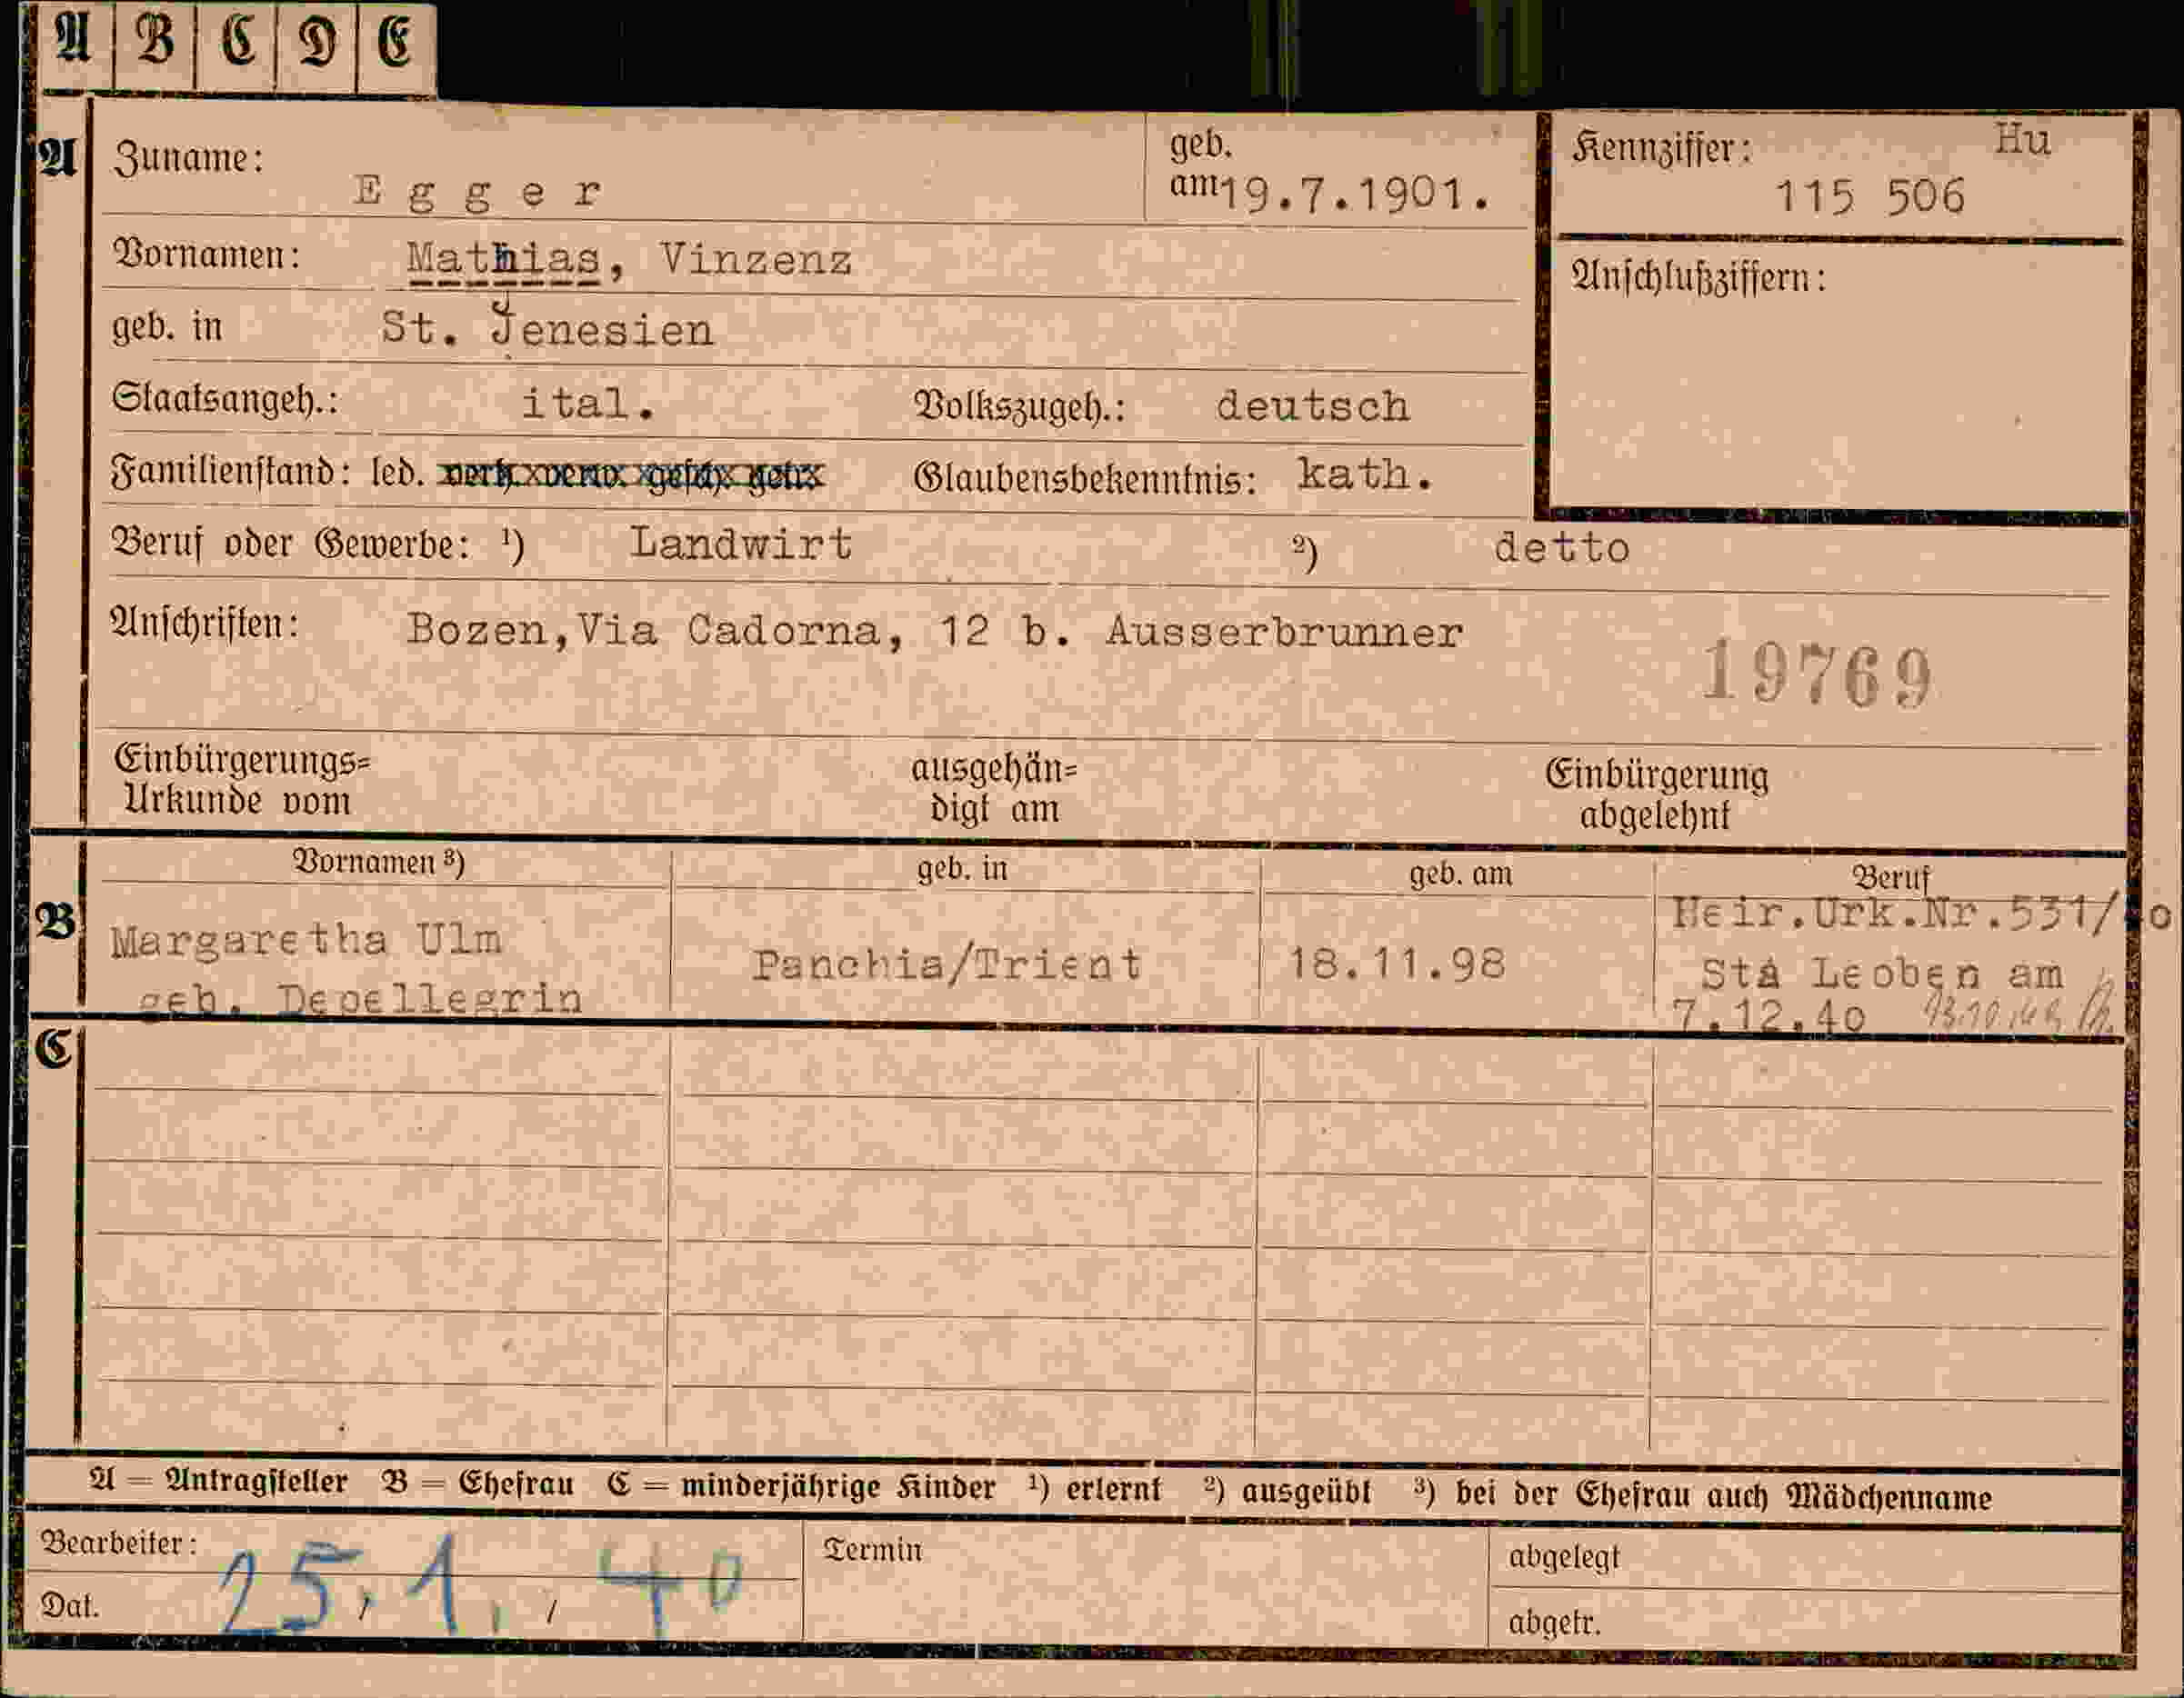 A B C D E
A Zuname: E g g e r geb. am 19.7.1901. Kennziffer: Hu 115 506
Vornamen: Mathias, Vinzenz
Anschlußziffern:
geb. in St. Jenesien
Staatsangeh.: ital. Volkszugeh.: deutsch
Familienstand: led. verh. verw. gesch. getr. Glaubensbekenntnis: kath.
Beruf oder Gewerbe: ¹) Landwirt ²) detto
Anschriften: Bozen,Via Cadorna, 12 b. Ausserbrunner
19769
Einbürgerungs= ausgehän= Einbürgerung
Urkunde vom digt am abgelehnt
Vornamen ³) geb. in geb. am Beruf
B Margaretha Ulm Panchia/Trient 18.11.98 Heir.Urk.Nr.531/40
geb. Depellegrin Sta Leoben am
7.12.40
C
A = Antragsteller B = Ehefrau C = minderjährige Kinder ¹) erlernt ²) ausgeübt ³) bei der Ehefrau auch Mädchenname
Bearbeiter: Termin abgelegt
Dat. 25.1.40 abgetr.